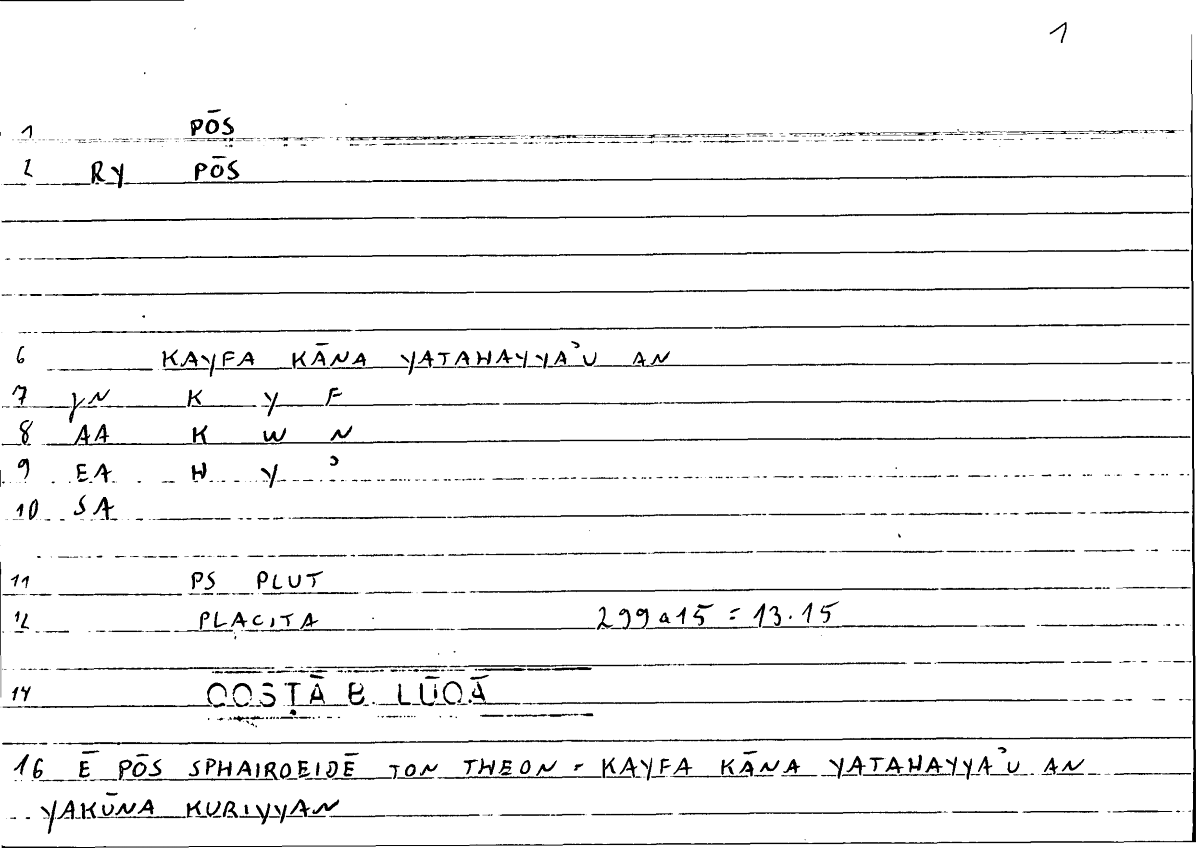 1
1 PŌS
2 RY PŌS
6 KAYFA KĀNA YATAHAYYAʾU AN
7 γN K Y F
8 AA K W N
9 EA H Y ʾ
10 SA
11 PS PLUT
12 PLACITA 299a15 = 13.15
14 QOSṬĀ B. LŪQĀ
16 Ē PŌS SPHAIROEIDĒ TON THEON = KAYFA KĀNA YATAHAYYAʾU AN
YAKŪNA KURIYYAN